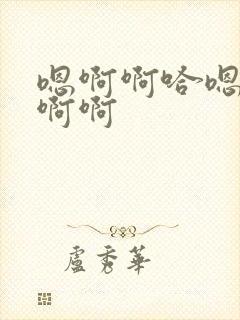 嗯啊啊哈~嗯
啊啊
盧秀華